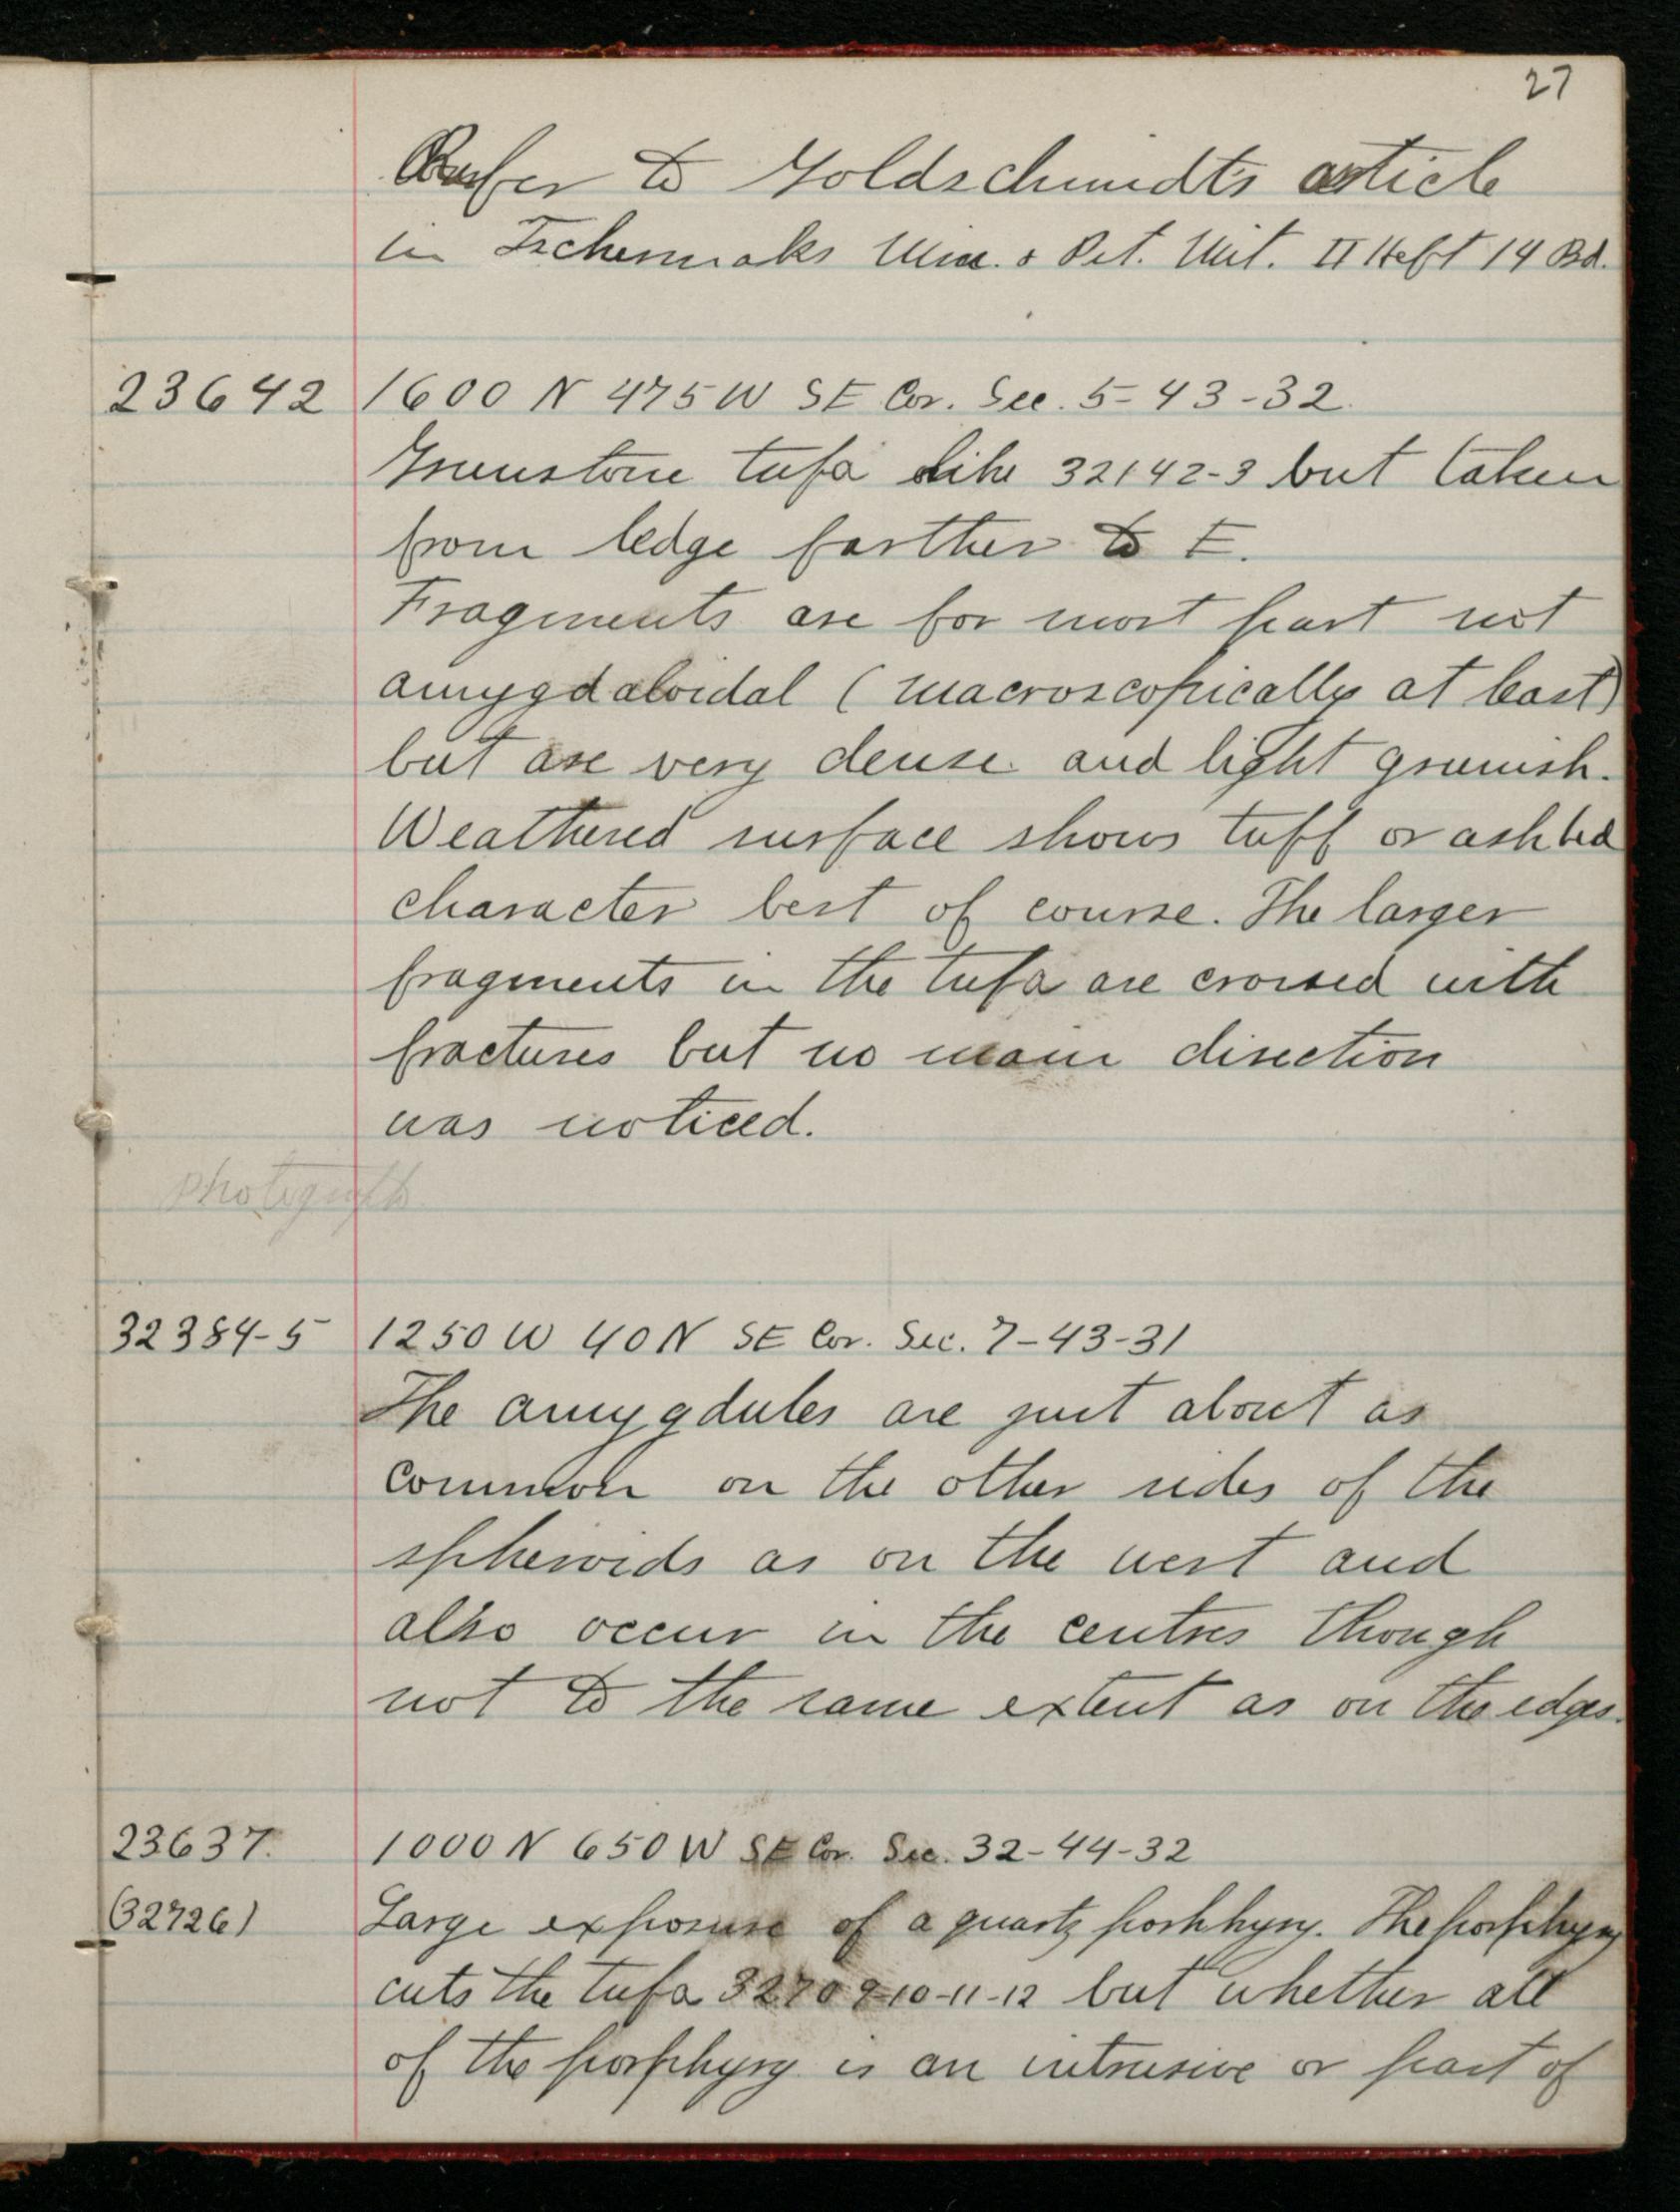 27
Refer to Goldschmidt's article
in Tschermaks Min. & Pet. Mit. II Heft 14 Bd.
23642 1600 N 475 W SE Cor. Sec. 5-43-32.
Greenstone tufa like 32142-3 but taken
from ledge farther to E.
Fragments are for most part not
amygdaloidal (macroscopically at least)
but are very dense and light greenish.
Weathered surface shows tuff or ash bed
character best of course. The larger
fragments in the tufa are crossed with
fractures but no main direction
was noticed.
Photograph
32384-5 1250 W 40 N SE Cor. Sec. 7-43-31
The amygdules are just about as
common on the other sides of the
spheroids as on the west and
also occur in the centres though
not to the same extent as on the edges.
23637. 1000 N 650 W SE Cor. Sec. 32-44-32
(32726) Large exposure of a quartz porphyry. The porphyry
cuts the tufa 32709-10-11-12 but whether all
of the porphyry is an intrusive or part of